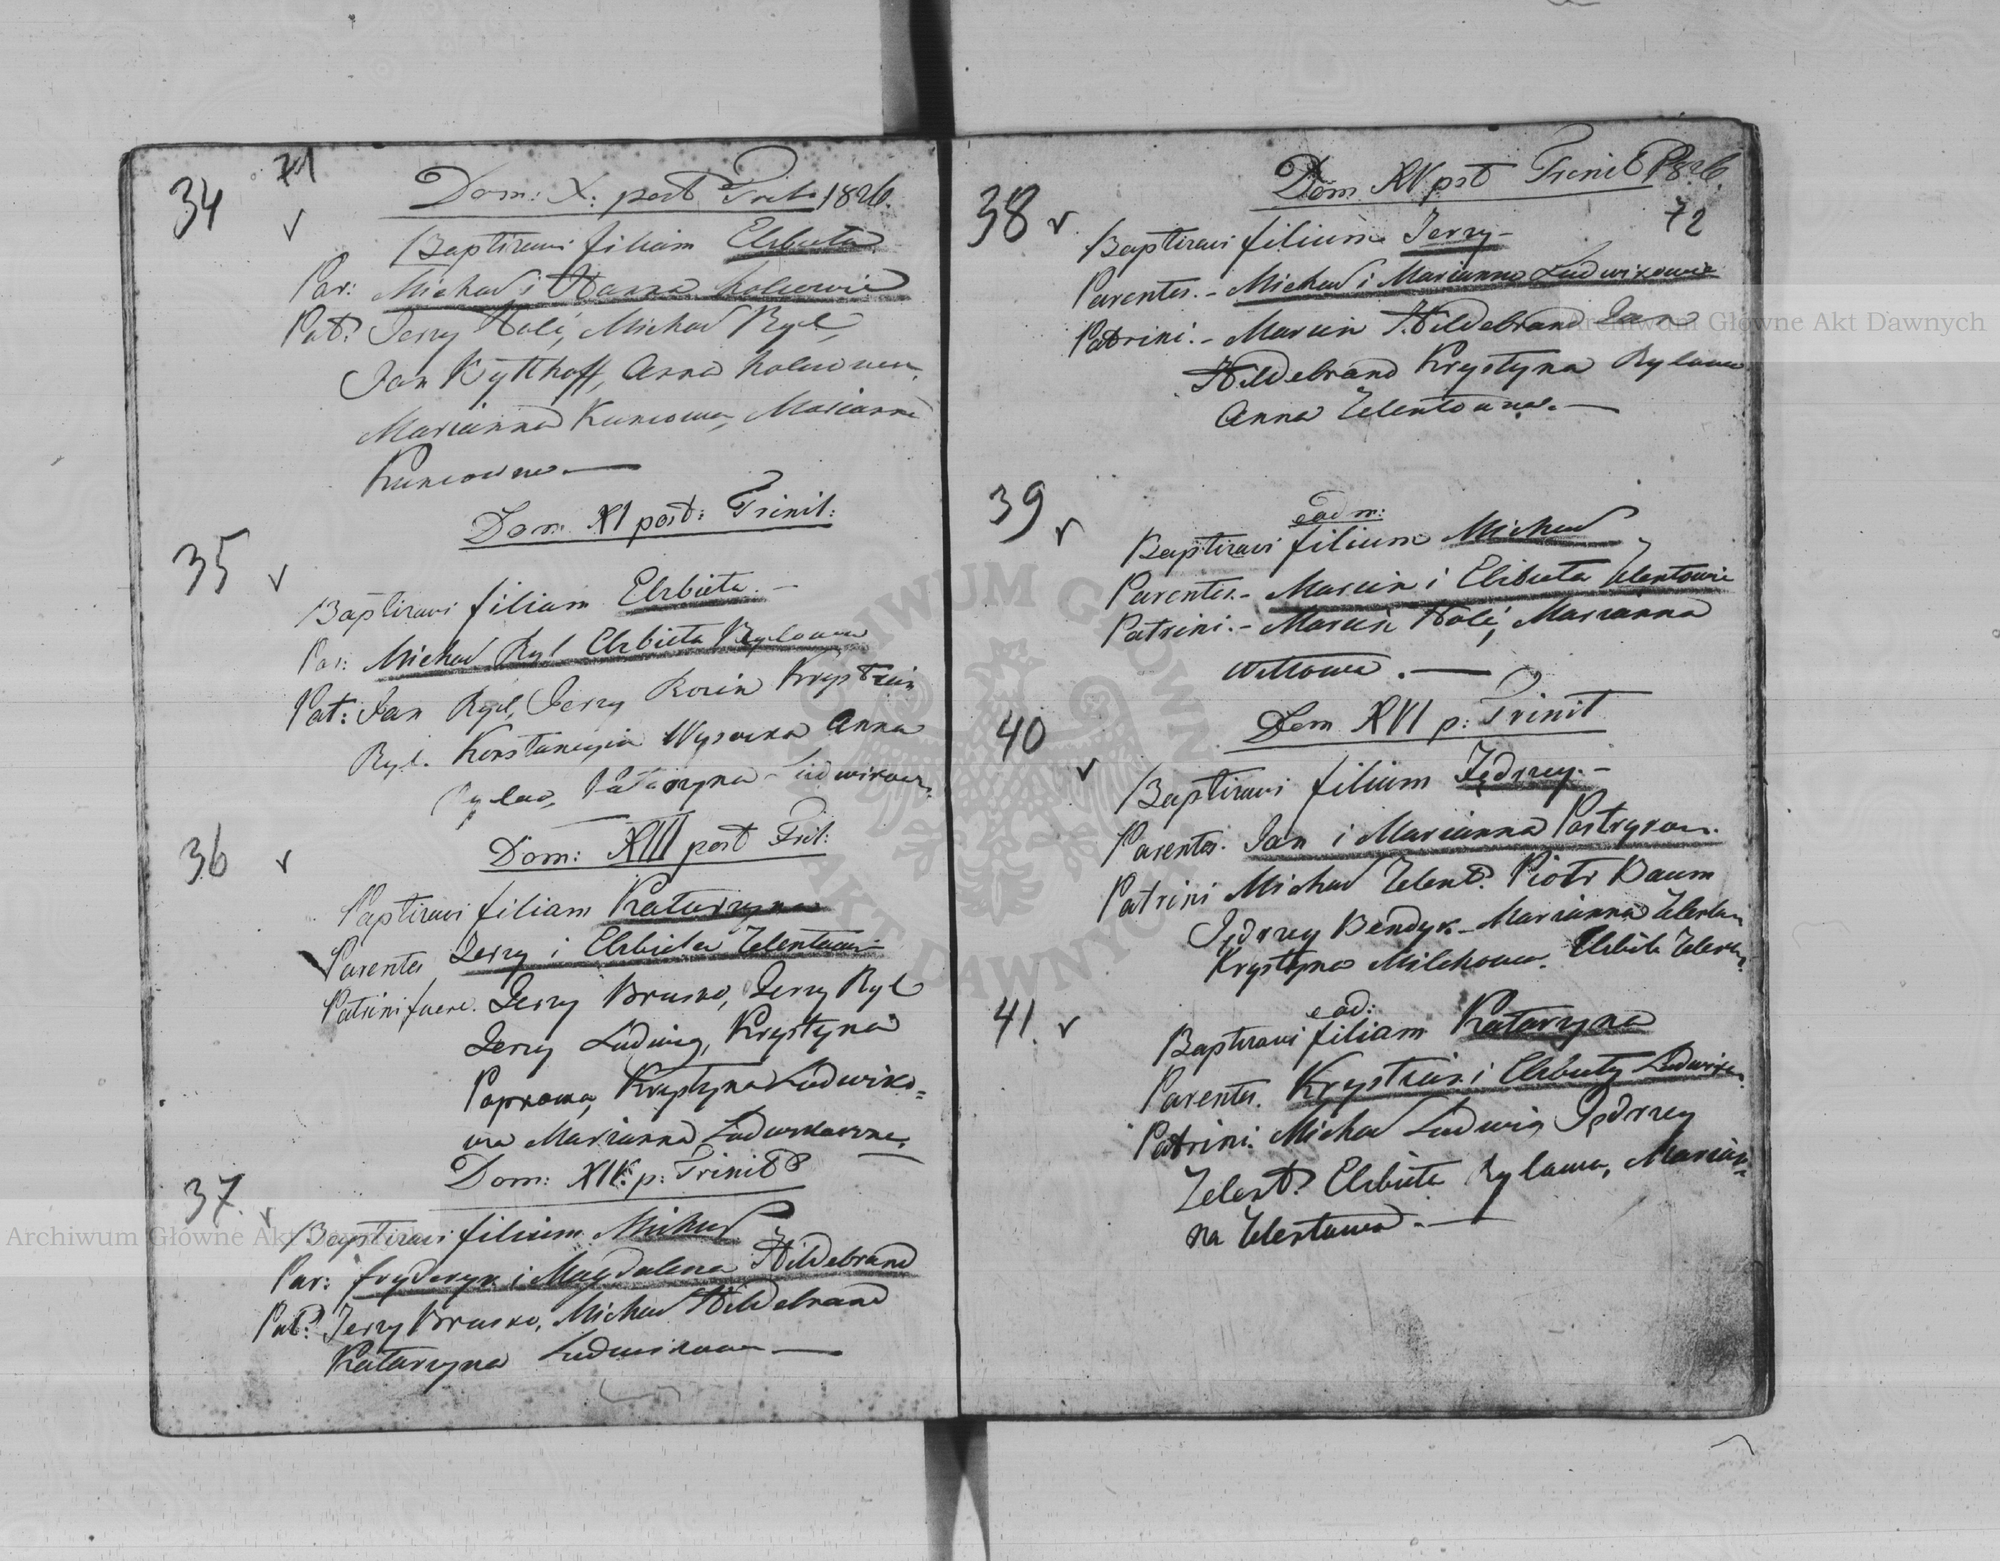 34 71
Dom: X: post Trit. 1826.
Baptizavi filiam Elzbieta
Par: Michał i Hanna
Pat: Jerzy Michał Ryl,
Jan Kytthoff, Anna
Marianna Kuncowa, Marianna
Kuncowna
Dom XI post: Trinit:
35
Baptizavi filiam Elzbieta. –
Par: Michał Ryl Elzbieta Rylowa
Pat: Jan Ryl, Jerzy Krystian
Ryl. Konstancyia Wysocka Anna
Katarzyna Ludwikowa
36
Dom: XIII post Trit:
Baptizavi filiam Katarzyna
Parentes Jerzy i Elzbieta Zelentowie
Patrini fuere. Jerzy Brusko, Jerzy Ryl
Jerzy Ludwig, Krystyna
Krystyna Ludwiko=
wa Marianna
Dom: p: Trinit
37.
Baptizavi filium Michał
Par: Fryderyk i Magdalena Hildebrand
Pat: Jerzy Brusko, Michał Hildebrand
Katarzyna Ludwikowa
38
Dom XV post Trinit 1826.
72
Baptizavi filium Jerzy –
Parentes. – Michał i Marianna Ludwikowie
Patrini. – Marcin Hildebrand Jan
Hildebrand Krystyna Rylowa
Anna Zelentowna. —
39
ead m:
Baptizavi filium Michał
Parentes. – Marcin i Elzbieta Zelentowie
Patrini. – Marcin Marianna
Wittowa. —
40
Dom XVI p: Trinit
Baptizavi filium Jędrzey. –
Parentes. Jan i Marianna
Patrini Michał Zelent. Piotr Baum
Jędrzey Bendyk – Marianna
Krystyna Milchowa. Elzbieta
41.
ead:
Baptizavi filiam Katarzyna
Parentes. Krystian i Elzbieta
Patrini. Michał Ludwig Jędrzey
Zelent. Elzbieta Rylowa, Marian=
na Zelentowa. —
Archiwum Główne Akt Dawnych
Archiwum Główne Akt Dawnych
ARCHIWUM GŁÓWNE AKT DAWNYCH